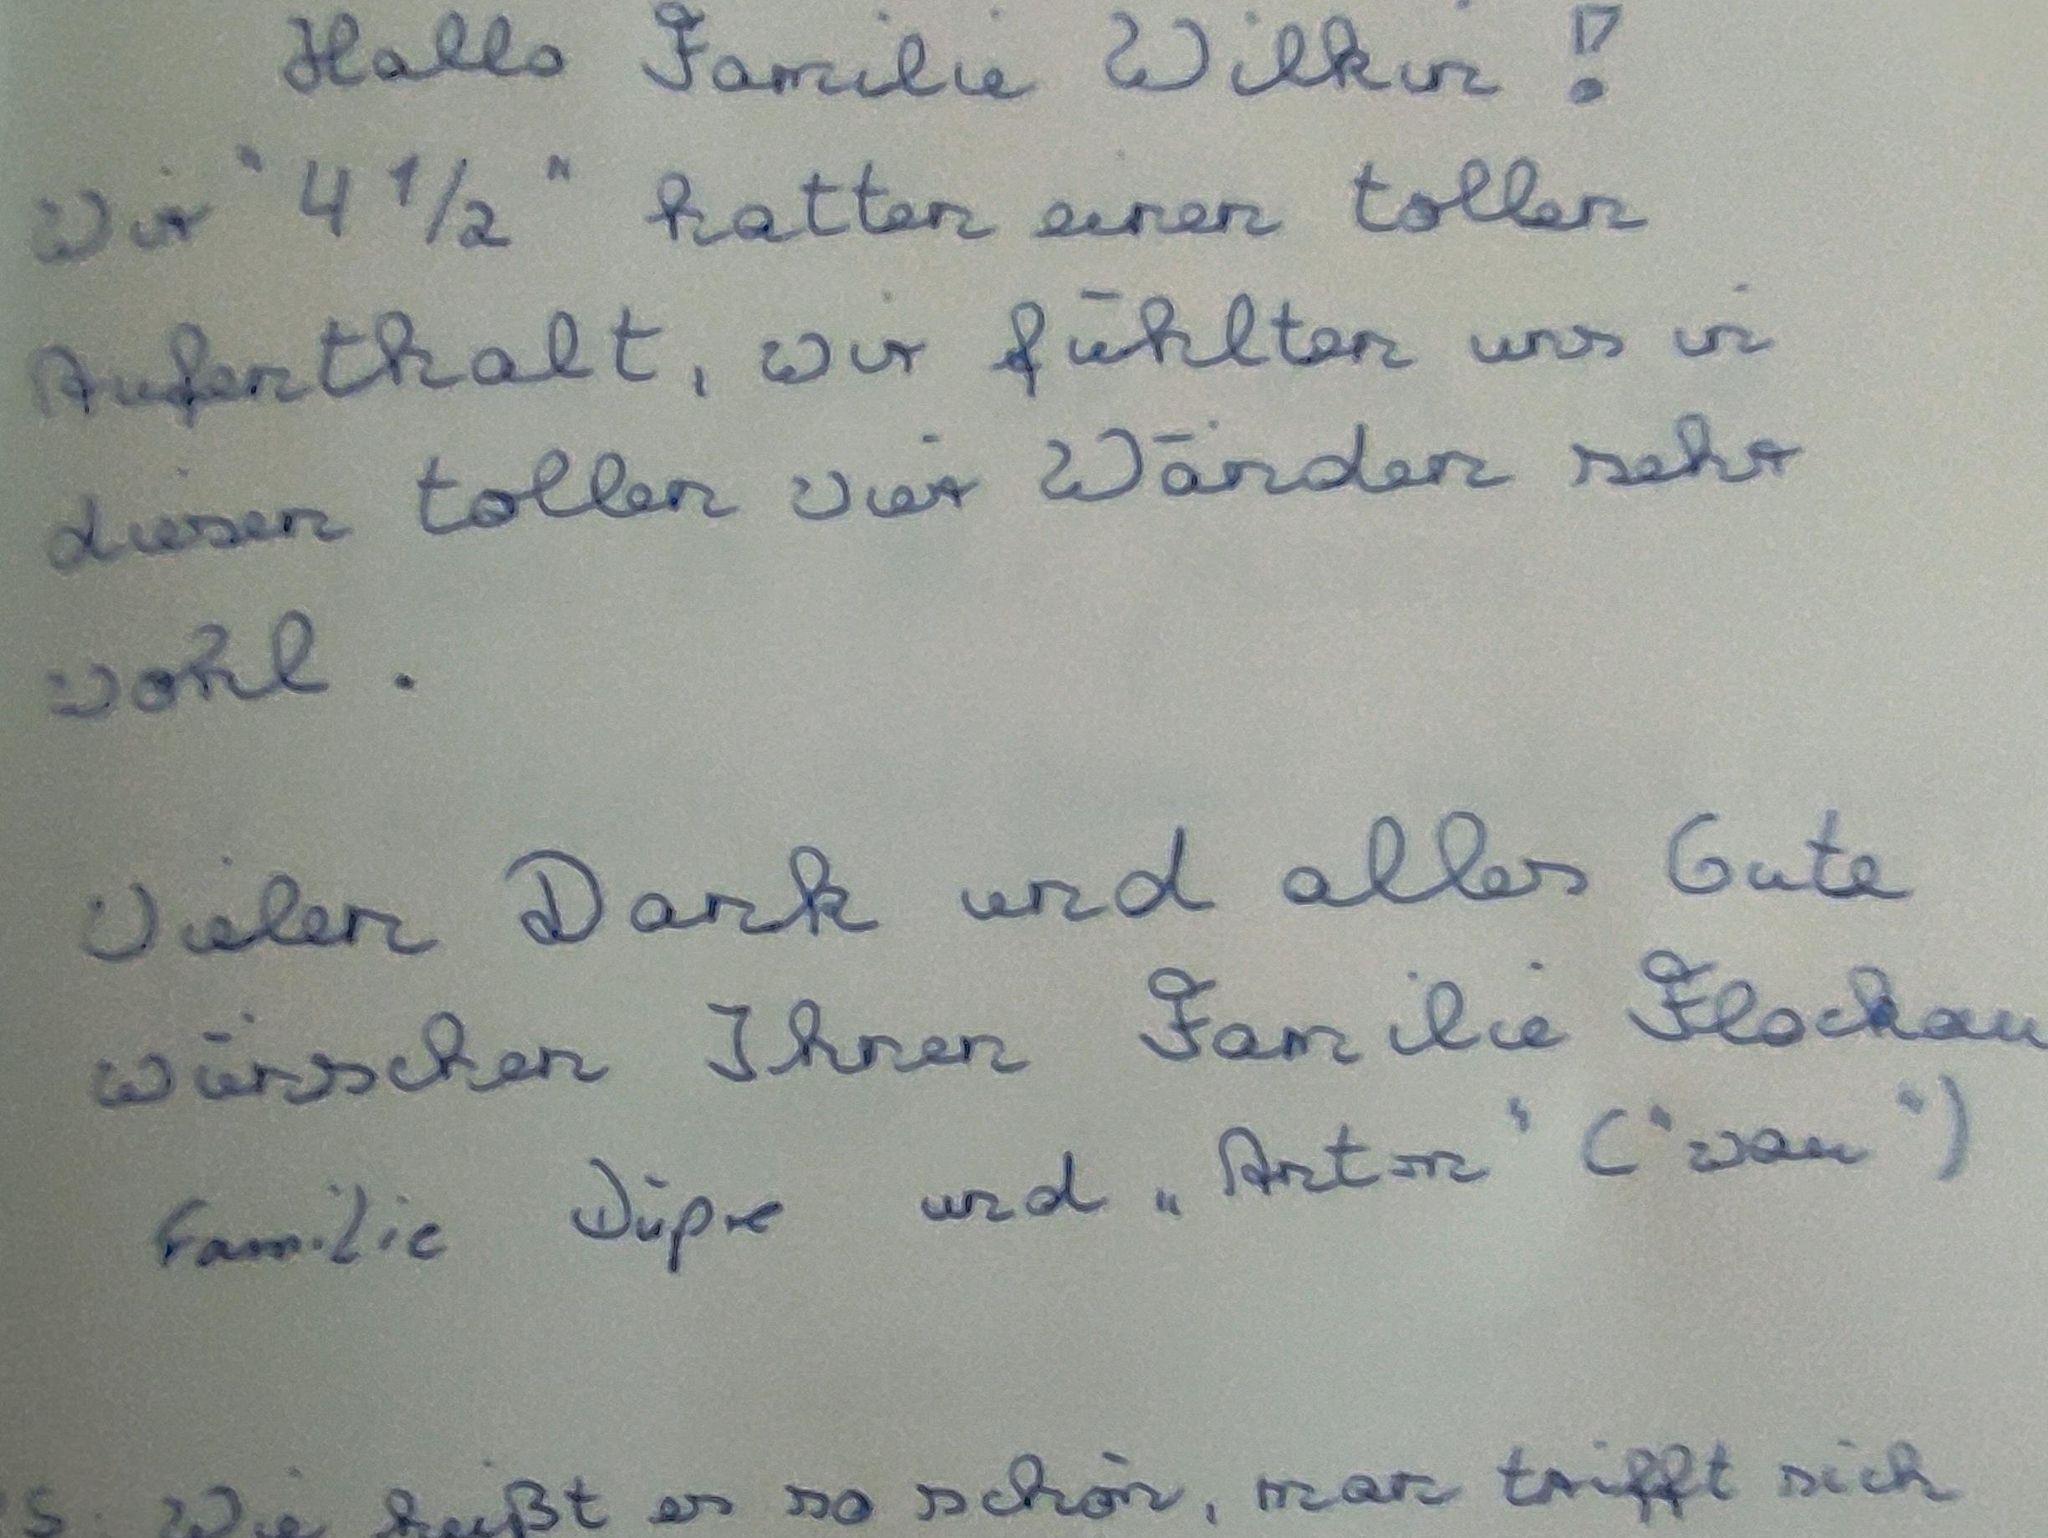 Hallo Familie Wilkin !
Wir "4 1/2" hatten einen tollen
Aufenthalt, wir fühlten uns in
diesen tollen vier Wänden sehr
wohl.
Vielen Dank und alles Gute
wünschen Ihnen Familie Flockau
Familie Düpre und „Anton" ("wau")
S. Wie heißt es so schön, man trifft sich